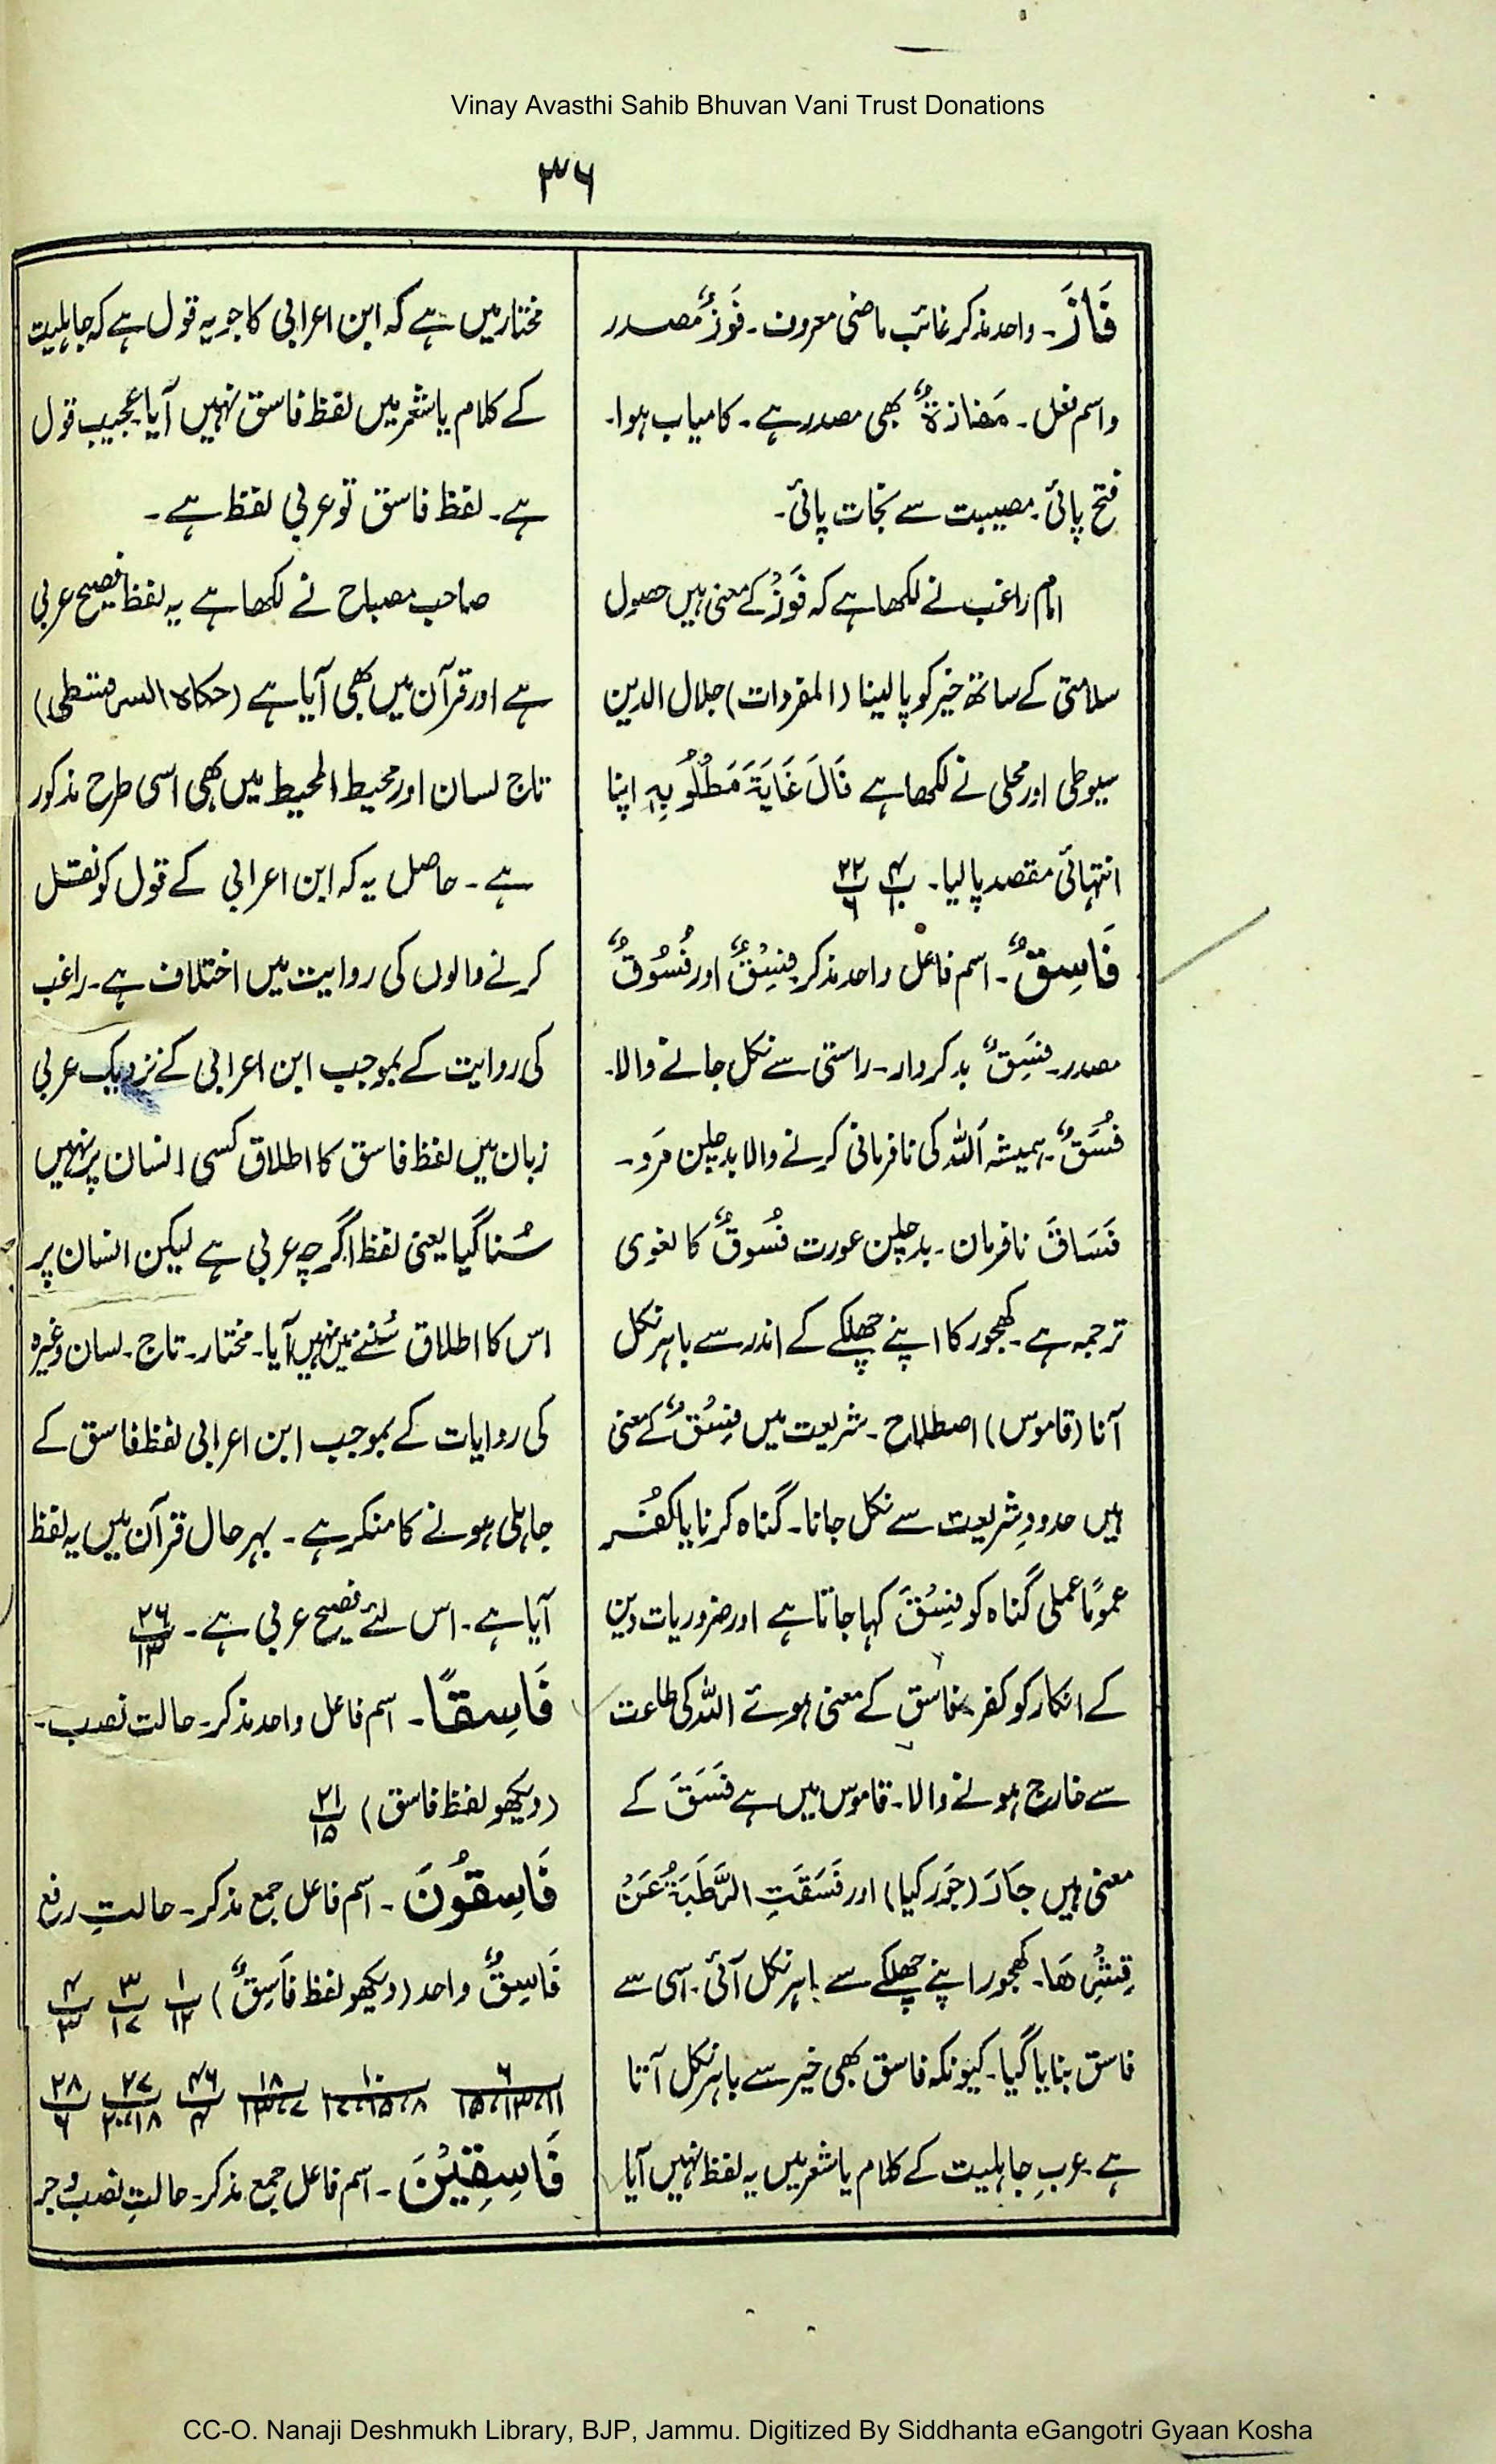 Vinay Avasthi Sahib Bhuvan Vani Trust Donations
۳۶
فَازَ۔ واحد مذکر غائب ماضی معروف۔ فَوْزٌ مصدر
واسم فعل۔ مَفَازَۃٌ بھی مصدر ہے۔ کامیاب ہوا۔
فتح پائی۔ مصیبت سے نجات پائی۔
امام راغب نے لکھا ہے کہ فَوْزٌ کے معنی ہیں حصول
سلامتی کے ساتھ خیر کو پا لینا (المفردات) جلال الدین
سیوطی اور محلی نے لکھا ہے نَالَ غَایَۃَ مَطْلُوْبِہٖ اپنا
انتہائی مقصد پا لیا۔ ۴/۱۰ ۲۲/۶
فَاسِقٌ۔ اسم فاعل واحد مذکر فِسْقٌ اور فُسُوْقٌ
مصدر۔ فَسِقٌ بدکردار۔ راستی سے نکل جانے والا۔
فُسَقٌ۔ ہمیشہ اللہ کی نافرمانی کرنے والا بدچلن مرد۔
فَسَاقَ نافرمان۔ بدچلن عورت فُسُوقٌ کا لغوی
ترجمہ ہے۔ کھجور کا اپنے چھلکے کے اندر سے باہر نکل
آنا (قاموس) اصطلاح۔ شریعت میں فِسْقٌ کے معنی
ہیں حدودِ شریعت سے نکل جانا۔ گناہ کرنا یا کفُر
عمومًا عملی گناہ کو فِسْقَ کہا جاتا ہے اور ضروریات دین
کے انکار کو کفر۔ فاسق کے معنی ہوئے اللہ کی طاعت
سے خارج ہونے والا۔ قاموس میں ہے فَسَقَ کے
معنی ہیں جَارَ (جَور کیا) اور فَسَقَتِ الرَّطَبَۃُ عَنْ
قِشْرِھَا۔ کھجور اپنے چھلکے سے باہر نکل آئی۔ اسی سے
فاسق بنایا گیا۔ کیونکہ فاسق بھی خیر سے باہر نکل آتا
ہے۔ عربِ جاہلیت کے کلام یا شعر میں یہ لفظ نہیں آیا
مختار میں ہے کہ ابن اعرابی کا جو یہ قول ہے کہ جاہلیت
کے کلام یا شعر میں لفظ فاسق نہیں آیا عجیب قول
ہے۔ لفظ فاسق تو عربی لفظ ہے۔
صاحب مصباح نے لکھا ہے یہ لفظ فصیح عربی
ہے اور قرآن میں بھی آیا ہے (حکاہ السرقسطی)
تاج لسان اور محیط المحیط میں بھی اسی طرح مذکور
ہے۔ حاصل یہ کہ ابن اعرابی کے قول کو نقل
کرنے والوں کی روایت میں اختلاف ہے۔ راغب
کی روایت کے بموجب ابن اعرابی کے نزدیک عربی
زبان میں لفظ فاسق کا اطلاق کسی انسان پر نہیں
سُنا گیا یعنی لفظ اگرچہ عربی ہے لیکن انسان پر
اس کا اطلاق سُننے میں نہیں آیا۔ مختار۔ تاج۔ لسان وغیرہ
کی روایات کے بموجب ابن اعرابی لفظ فاسق کے
جاہلی ہونے کا منکر ہے۔ بہرحال قرآن میں یہ لفظ
آیا ہے۔ اس لئے فصیح عربی ہے۔ ۲۶/۱۳
فَاسِقًا۔ اسم فاعل واحد مذکر۔ حالت نصب۔
(دیکھو لفظ فاسق) ۲۱/۱۵
فَاسِقُونَ۔ اسم فاعل جمع مذکر۔ حالتِ رفع
فَاسِقٌ واحد (دیکھو لفظ فَاسِقٌ) ۱/۱۲ ۳/۱۷ ۴/۳
۶/۱۱،۱۳،۱۵ ۱۰/۸،۱۵،۱۷ ۱۸/۷،۱۳ ۲۶/۴ ۲۷/۱۸،۲۰ ۲۸/۶
فَاسِقِیْنَ۔ اسم فاعل جمع مذکر۔ حالتِ نصب و جر
CC-O. Nanaji Deshmukh Library, BJP, Jammu. Digitized By Siddhanta eGangotri Gyaan Kosha